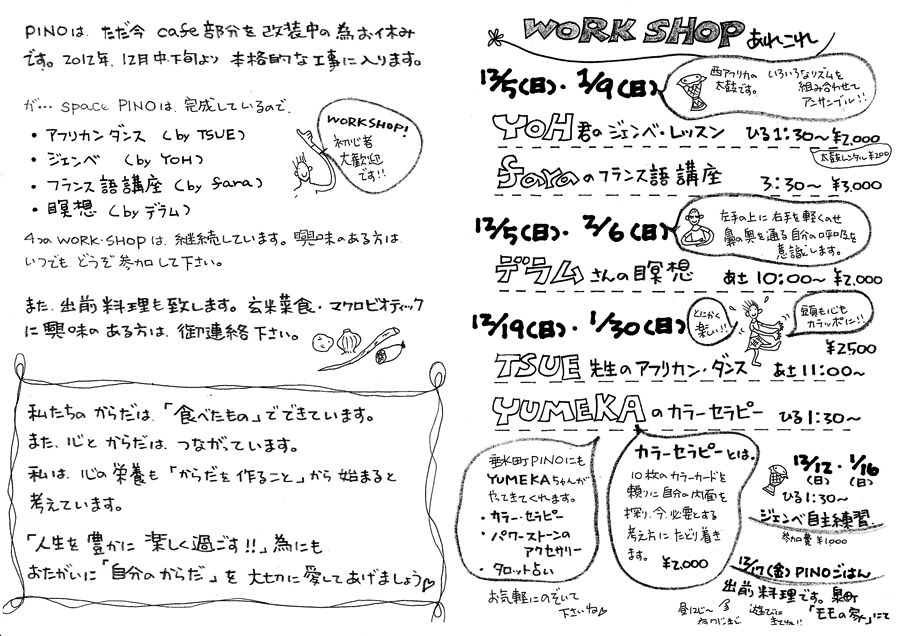 PINOは、ただ今 cafe部分を改装中の為お休み
です。2012年、12月中下旬より 本格的な工事に入ります。
が… space PINOは、完成しているので、
・アフリカンダンス (by TSUE)
・ジェンベ (by YOH)
・フランス語講座 (by fara)
・瞑想 (by デラム)
WORKSHOP!
初心者
大歓迎
です!!
4つのWORK・SHOPは、継続しています。興味のある方は、
いつでも、どうぞ参加して下さい。
また、出前料理も致します。玄米菜食・マクロビオティック
に興味のある方は、御連絡下さい。
私たちの からだは、「食べたもの」でできています。
また、心と からだは、つながっています。
私は、心の栄養も「からだを作ること」から 始まると
考えています。
「人生を豊かに 楽しく過ごす!!」為にも
おたがいに「自分のからだ」を 大切に愛してあげましょう♡
WORK SHOP あれこれ
12/5(日)・1/9(日)
西アフリカの
太鼓です。
いろいろなリズムを
組み合わせて
アンサンブル!!
YOH君のジェンベ・レッスン ひる1:30〜¥2,000
太鼓レンタル¥200
faraのフランス語講座 3:30〜 ¥3,000
12/5(日)・2/6(日)
左手の上に右手を軽くのせ
鼻の奥を通る自分の呼吸を
意識します。
デラムさんの瞑想 あさ10:00〜¥2,000
12/19(日)・1/30(日)
とにかく
楽しい!!
頭も心も
カラッポに!!
¥2500
TSUE先生のアフリカン・ダンス あさ11:00〜
YUMEKAのカラーセラピー ひる1:30〜
垂水町PINOにも
YUMEKAちゃんが
やってきてくれます。
・カラー・セラピー
・パワーストーンの
アクセサリー
・タロット占い
お気軽にのぞいて
下さいね♡
カラーセラピーとは、
10枚のカラーカードを
頼りに自分の内面を
探り、今、必要とする
考え方に たどり着き
ます。
¥2,000
12/12(日)・1/16(日)
ひる1:30〜
ジェンベ自主練習
参加費¥1000
12/17(金)PINOごはん
出前料理です。泉町
「モモの家」にて
昼12じ〜
遊びに
きてね!!